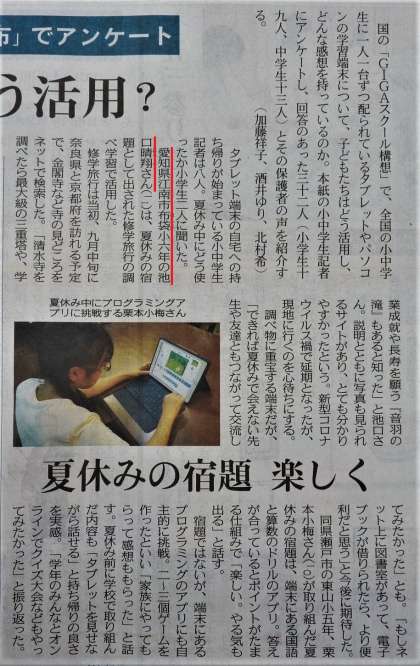 市」でアンケート
う活用？
国の「ＧＩＧＡスクール構想」で、全国の小中学
生に一人一台ずつ配られているタブレットやパソコ
ンの学習端末について、子どもたちはどう活用し、
どんな感想を持っているのか。本紙の小中学生記者
にアンケートし、回答のあった三十二人（小学生十
九人、中学生十三人）とその保護者の声を紹介す
る。
（加藤祥子、酒井ゆり、北村希）
タブレット端末の自宅への持
ち帰りが始まっている小中学生
記者は八人。夏休み中にどう使
ったか小学生二人に聞いた。
愛知県江南市布袋小六年の池
口晴翔さん（一二）は、夏休みの宿
題として出された修学旅行の調
べ学習で活用した。
修学旅行は当初、九月中旬に
奈良県と京都府を訪れる予定
で、金閣寺など寺の見どころを
ネットで検索した。「清水寺を
調べたら最大級の三重塔や、学
業成就や長寿を願う『音羽の
滝』もあると知った」と池口さ
ん。説明とともに写真も見られ
るサイトがあり、とても分かり
やすかったという。新型コロナ
ウイルス禍で延期となったが、
現地に行くのを心待ちにする。
調べ物に重宝する端末だが、
「できれば夏休みで会えない先
生や友達ともつながって交流し
夏休み中にプログラミングア
プリに挑戦する栗本小梅さん
夏休みの宿題 楽しく
てみたかった」とも。「もしネ
ット上に図書室があって、電子
ブックが借りられたら、より便
利だと思う」と今後に期待した。
同県瀬戸市の東山小五年、栗
本小梅さんが取り組んだ夏
休みの宿題は、端末にある国語
と算数のドリルのアプリ。答え
が合っているとポイントがたま
る仕組みで「楽しい。やる気も
出る」と話す。
宿題ではないが、端末にある
プログラミングのアプリにも自
主的に挑戦。二～三個ゲームを
作ったといい「家族にやっても
らって感想ももらった」と話
す。夏休み前に学校で取り組ん
だ内容も「タブレットを見せな
がら話せる」と持ち帰りの良さ
を実感。「学年のみんなとオン
ラインでクイズ大会などもやっ
てみたかった」と振り返った。